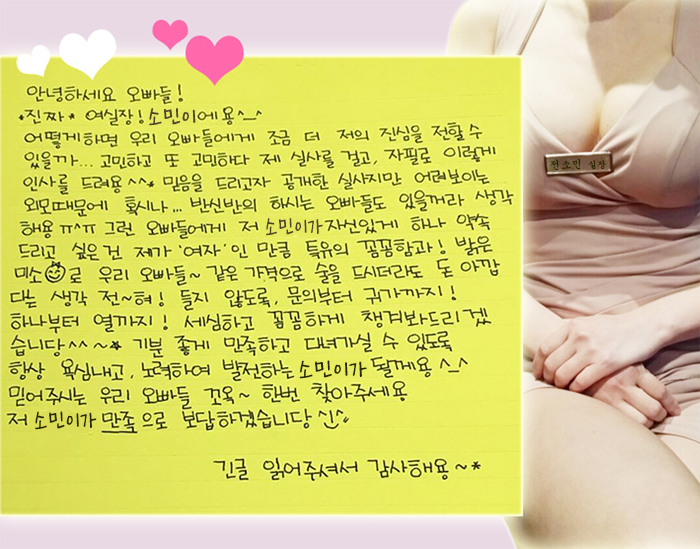 안녕하세요 오빠들!
*진짜* 여실장!소민이에용^_^
어떻게하면 우리 오빠들에게 조금 더 저의 진심을 전할수
있을까... 고민하고 또 고민하다 제 실사를 걸고, 자필로 이렇게
인사를 드려용^^* 믿음을 드리고자 공개한 실사지만 어려보이는
외모때문에 혹시나... 반신반의 하시는 오빠들도 있을꺼라 생각
해용ㅠ^ㅠ 그런 오빠들에게 저 소민이가 자신있게 하나 약속
드리고 싶은건 제가 '여자'인 만큼 특유의 꼼꼼함과! 밝은
미소로 우리 오빠들~ 같은 가격으로 술을 드시더라도 돈 아깝
다는 생각 전~혀! 들지 않도록, 문의부터 귀가까지!
하나부터 열까지! 세심하고 꼼꼼하게 챙겨봐드리겠
습니당^^~* 기분 좋게 만족하고 대녀가실 수 있도록
항상 욕심내고, 노력하여 발전하는 소민이가 될게용^_^
믿어주시는 우리 오빠들 꼬옥~ 한번 찾아주세용
저 소민이가 만족으로 보답하겠습니당
긴글 읽어주셔서 감사해용~*
전소민 실장